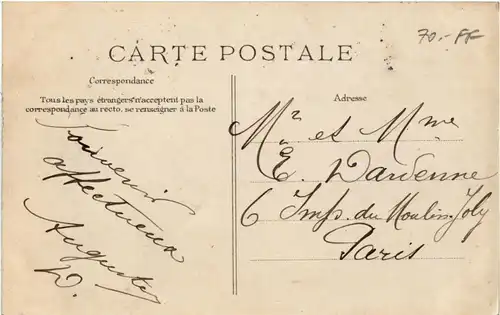 70.- FF
CARTE POSTALE
Correspondance
Tous les pays étrangers n'acceptent pas la
correspondance au recto. se renseigner à la Poste
Souvenir
affectueux
Auguste
D.
Adresse
Mr et Mme
E. Dardenne
6 Imp. du Moulin Joly
Paris